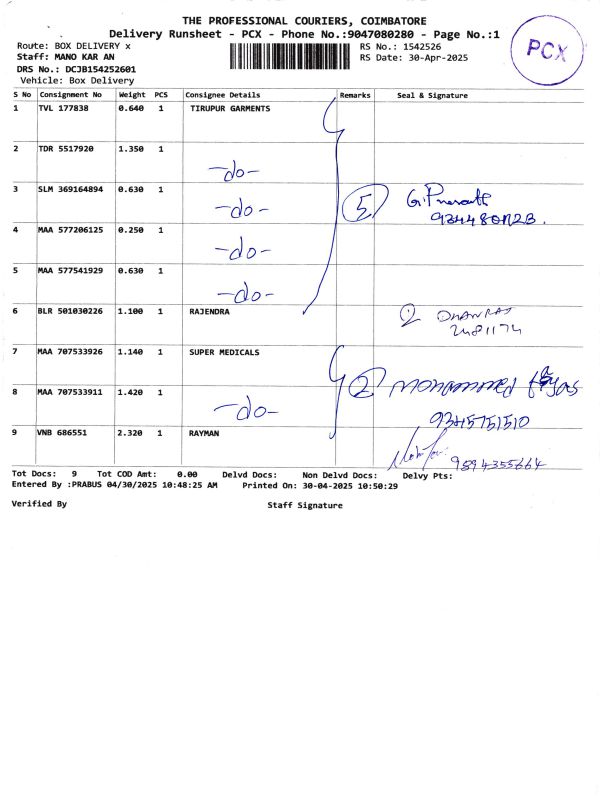 THE PROFESSIONAL COURIERS, COIMBATORE
Delivery Runsheet - PCX - Phone No.:9047080280 - Page No.:1
PCX
Route: BOX DELIVERY x
RS No.: 1542526
Staff: MANO KAR AN
RS Date: 30-Apr-2025
DRS No.: DCJB154252601
Vehicle: Box Delivery
S No Consignment No Weight PCS Consignee Details Remarks Seal & Signature
1 TVL 177838 0.640 1 TIRUPUR GARMENTS
2 TDR 5517920 1.350 1 -do-
3 SLM 369164894 0.630 1 -do- 5
4 MAA 577206125 0.250 1 -do-
5 MAA 577541929 0.630 1 -do-
6 BLR 501030226 1.100 1 RAJENDRA DHANRAJ
2481174
7 MAA 707533926 1.140 1 SUPER MEDICALS
8 MAA 707533911 1.420 1 -do- 2 Mohammed
9345751510
9 VNB 686551 2.320 1 RAYMAN
9894355664
Tot Docs: 9 Tot COD Amt: 0.00 Delvd Docs: Non Delvd Docs: Delvy Pts:
Entered By :PRABUS 04/30/2025 10:48:25 AM Printed On: 30-04-2025 10:50:29
Verified By Staff Signature